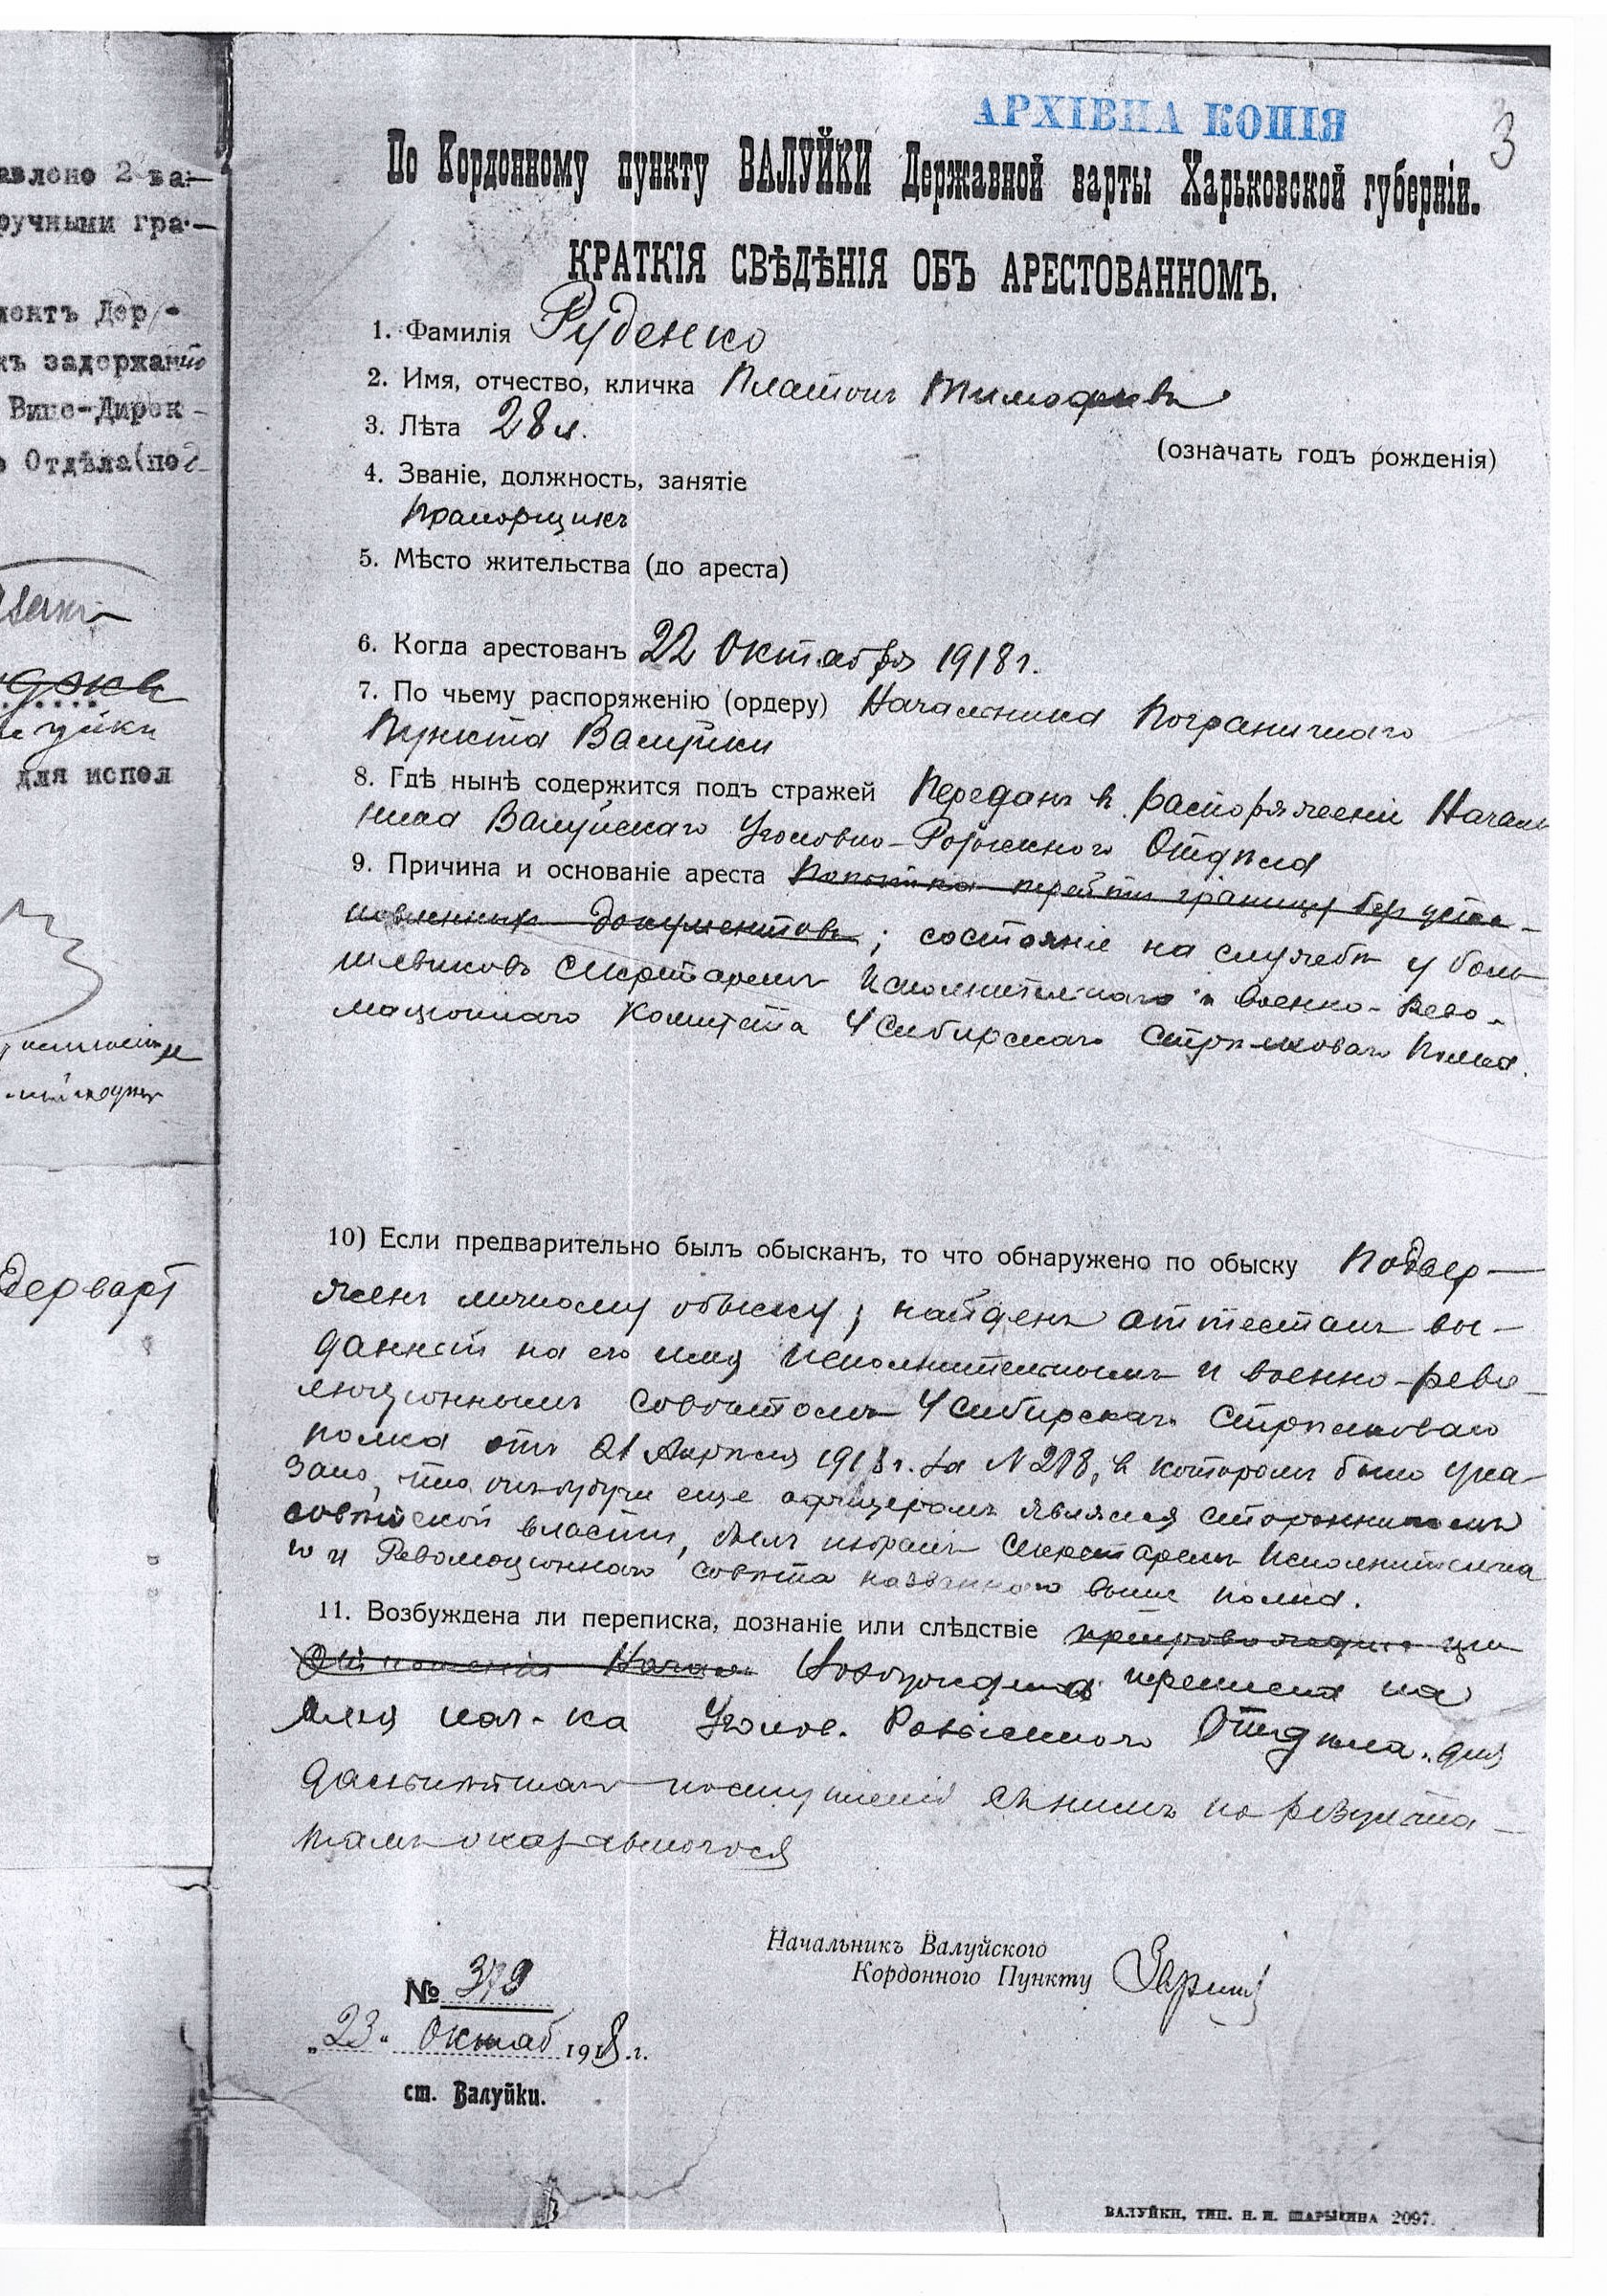 АРХІВНА КОПІЯ
3
По Кордонному пункту ВАЛУЙКИ Державной варты Харьковской губерніи.
КРАТКІЯ СВѢДѢНІЯ ОБЪ АРЕСТОВАННОМЪ.
1. Фамилія Руденко
2. Имя, отчество, кличка Платонъ Тимофеевъ
3. Лѣта 28 л.
(означать годъ рожденія)
4. Званіе, должность, занятіе
Прапорщикъ
5. Мѣсто жительства (до ареста)
6. Когда арестованъ 22 Октября 1918 г.
7. По чьему распоряженію (ордеру) Начальника Пограничнаго
Пункта Валуйки
8. Гдѣ нынѣ содержится подъ стражей Переданъ в распоряженіи Началь
ника Валуйскаго Уголовно-Розыскного Отдѣла
9. Причина и основаніе ареста Попытка перейти границу без уста-
новленных документовъ; состояніе на службѣ у боль
шевиковъ Секретаремъ Исполнительнаго и Военно-Рево-
люціоннаго Комитета 4 Сибирскаго Стрѣлковаго Полка.
10) Если предварительно былъ обысканъ, то что обнаружено по обыску Подвер-
женъ личному обыску; найденъ аттестатъ вы-
данный на его имя Исполнительнымъ и военно-рево-
люціоннымъ Совѣтомъ 4 Сибирскаго Стрѣлковаго
полка отъ 21 Апрѣля 1918 г. за № 218, в которомъ было ука-
зано, что онъ будучи еще офицеромъ являлся сторонникомъ
совѣтской власти, былъ избранъ Секретаремъ Исполнительна
го и Революціоннаго совѣта названного выше полка.
11. Возбуждена ли переписка, дознаніе или слѣдствіе препровождено при
Отношеніи Начал Возбуждена переписка на
имя нач-ка Уголов. Розыскного Отдѣла для
дальнѣйшаго поступленія съ нимъ по результа-
тамъ оказавшегося
Начальникъ Валуйского
Кордонного Пункту
№ 379
„23" Октяб 1918 г.
ст. Валуйки.
ВАЛУЙКИ, ТИП. Н. И. ШАРЫКИНА 2097.
авлено 2 ва-
ручными гра-
ментъ Дер-
къ задержанію
Вице-Дирек-
о Отдѣла (под
для испол
Державарт